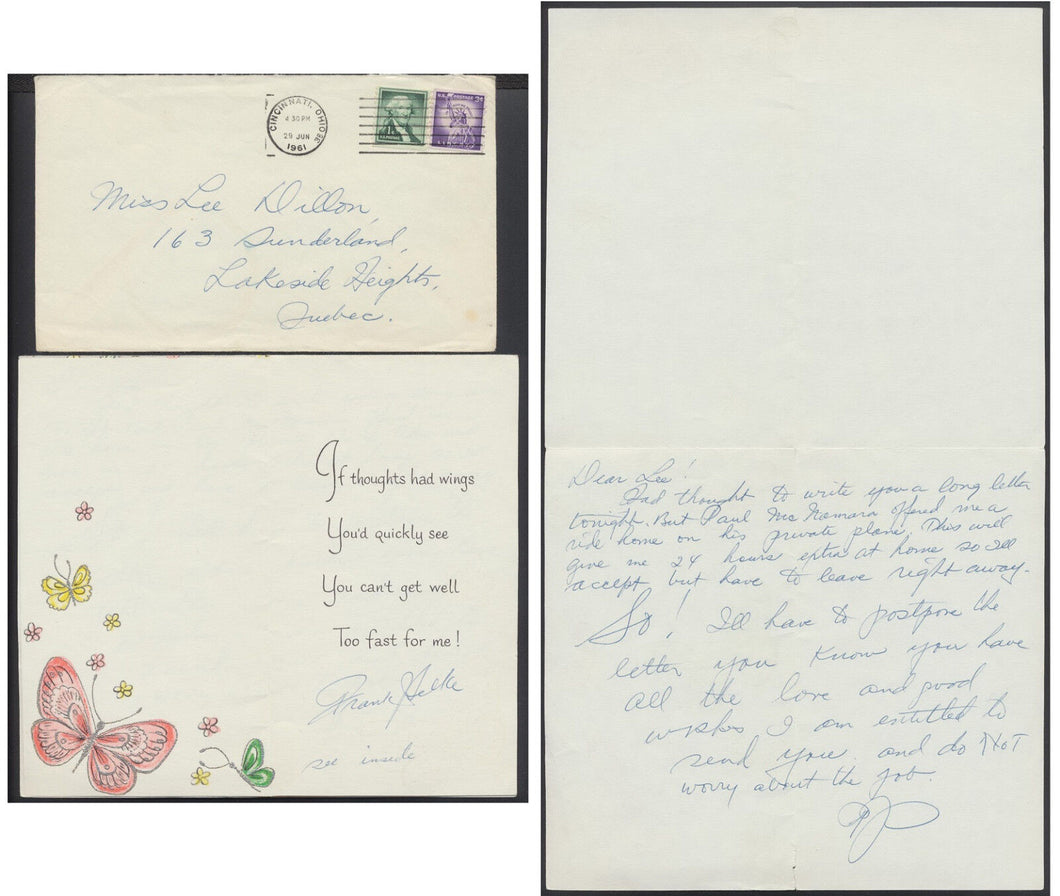 CINCINNATI, OHIO
4 30 PM
29 JUN
1961
U.S. POSTAGE 3¢
1¢
Miss Lee Dillon,
163 Sunderland,
Lakeside Heights,
Quebec.
If thoughts had wings
You'd quickly see
You can't get well
Too fast for me!
Frank Selke
see inside
Dear Lee!
Had thought to write you a long letter
tonight. But Paul McNamara offered me a
ride home on his private plane. This will
give me 24 hours extra at home so I'll
accept, but have to leave right away.
So! I'll have to postpone the
letter you know you have
all the love and good
wishes I am entitled to
send you. and do NOT
worry about the job.